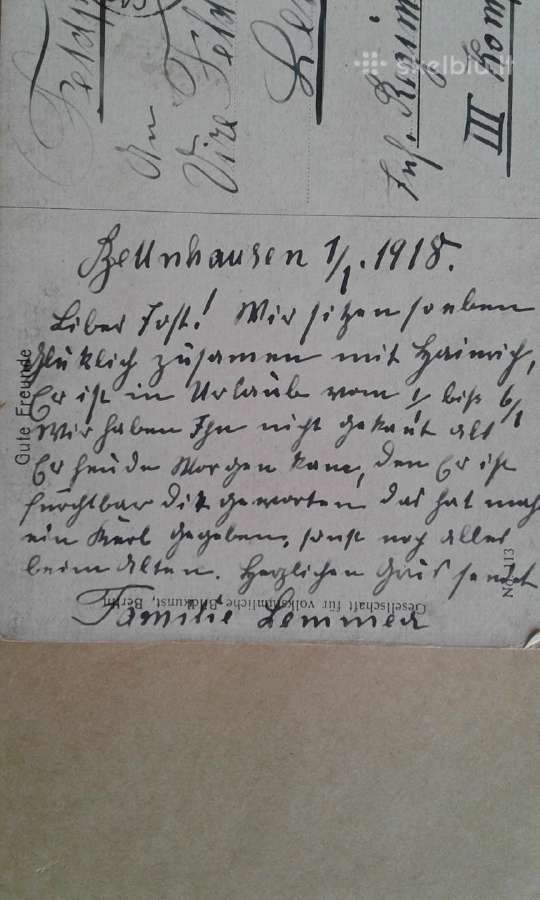 An
Vize Feld
Inf.
III
skelbiu.lt
Bellnhausen 1/1. 1918.
Liber Jost! Wir sitzen soeben
Glüklich zusamen mit Hainrich,
Er ist in Urlaub vom 1/ bis 6/1
Wir haben Ihn nicht gekant als
Er heude Morgen kam, den Er ist
furchtbar dik geworten das hat mah
ein Kerl gegeben, sonst noch alles
beim Alten. Herzlichen Grus sendet
Familie Lemmer
Gute Freunde
Gesellschaft für volkstümliche Bildkunst, Berlin